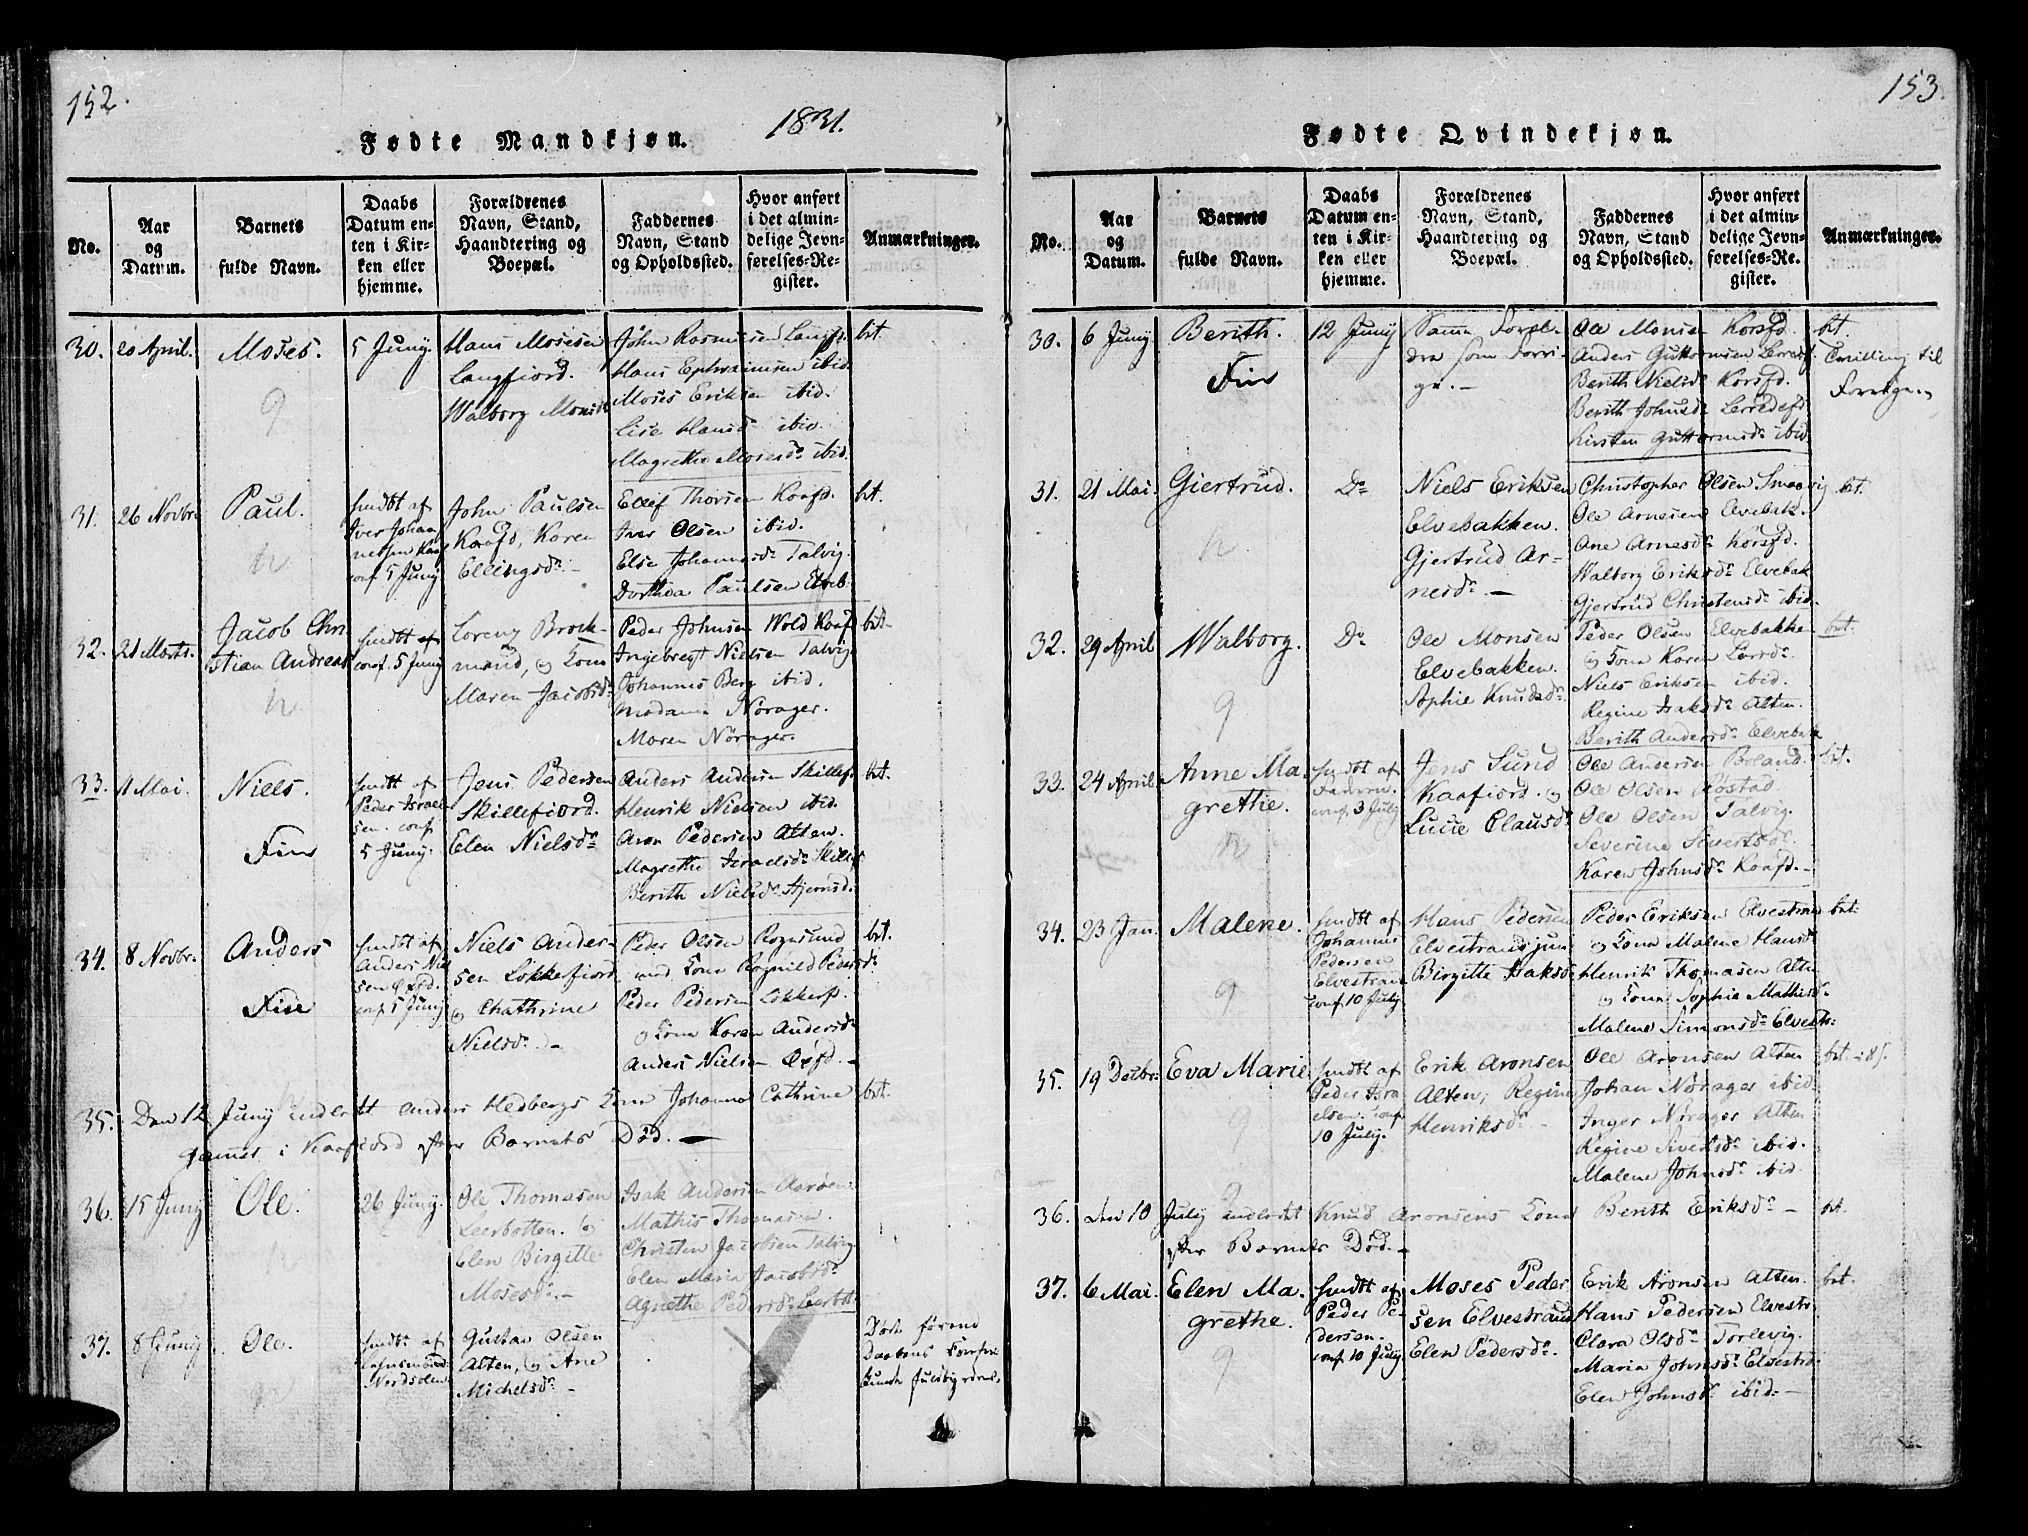 152.
1831.
Fødte Mandkjøn.
No.
Aar
og
Datum.
Barnets
fulde Navn.
Daabs
Datum en-
ten i Kir-
ken eller
hjemme.
Forældrenes
Navn, Stand,
Haandtering og
Boepæl.
Faddernes
Navn, Stand
og Opholdssted.
Hvor anført
i det almin-
delige Jevn-
førelses-Re-
gister.
Anmærkninger.
30. 20 April. Moses. 5 Juny. Hans Mosesen
Langfiord.
Walborg Monsdr
John Rasmusen Langf.
Hans Ephraimsen ibid.
Moses Eriksen ibid.
Lise Hansdr ibid.
Magrethe Mosesdr ibid.
bt.
31. 26 Novbr. Paul.
hmdt af
Iver Johan
nessen Kaaf
conf. 5 Juny
John Paulsen
Kaafd, Karen
Ellingsdr. -
Ellef Thorsen Kaafd.
Iver Olsen ibid.
Else Johannesdr Talvig.
Dorthea Paulsen Elveb.
bt.
32. 21 Marts. Jacob Chri-
stian Andreas
hmdt af
conf. 5 Juny
Lorenz Brock-
mand, og Kona
Maren Jacobsdr
Peder Johnsen Wold Kaaf
Ingebregt Nielsen Talvig
Johannes Berg ibid.
Madame Nørager.
Maren Nørager.
bt.
33. 1 Mai. Niels.
Fin
hmdt af
Peder Israel
sen. conf.
5 Juny.
Jens Pedersen
Skillefiord.
Elen Nielsdr
Anders Andersen Skillef.
Henrik Nielsen ibid.
Aron Pedersen Alten.
Magrethe Israelsdr Skillef
Berith Nielsdr
bt.
34. 8 Novbr. Anders
Fin
hmdt af
Anders Niel
sen Oxfd.
conf. 5 Juny
Niels Ander-
sen Lokkefiord
og Chathrine
Nielsdr. -
Peder Olsen Rognsund
med Kona Rognild Pedersdr.
Peder Pedersen Lokkerf.
og Kona Karen Andersdr
Anders Nielsen Oxfd. -
bt.
35. Den 12 Juny indledt Anders Hedbergs Kona Johanna Cathrine
i Kaafiord efter Barnets Død. -
bt.
36. 15 Juny Ole. 26 Juny. Ole Thomasen
Leerbotten. og
Elen Birgitte
Mosesdr. -
Isak Andersen Aarøen.
Mathis Thomasen.
Christen Jacobsen Talvig
Elen Maria Jacobsdr
Agnethe Pedersdr Leerbot.
37. 8 Juny Ole.
hmdt af
Nordsolen
Gustav Olsen
Alten, og Ane
Michelsdr -
Døde førend
Daabens
kunde
153.
Fødte Qvindekjøn.
No.
Aar
og
Datum.
Barnets
fulde Navn.
Daabs
Datum en-
ten i Kir-
ken eller
hjemme.
Forældrenes
Navn, Stand,
Haandtering og
Boepæl.
Faddernes
Navn, Stand
og Opholdssted.
Hvor anført
i det almin-
delige Jevn-
førelses-Re-
gister.
Anmærkninger.
30. 6 Juny Berith.
Fin
12 Juny Samme Foræl-
dre som Forri-
ge. -
Ole Monsen Korsfd.
Anders Guttormsen Lerredsf.
Berith Nielsdr Korsfd.
Berith Johnsdr Lerredsfd
Kirsten Guttormsdr ibid
bt.
Tvilling til
Forrige
31. 21 Mai. Giertrud. Do Niels Eriksen
Elvebakken.
Gjertrud Ar-
nesdr. -
Christopher Olsen Smaavig
Ole Arnesen Elvebak.
Ane Arnesdr Korsfd.
Walborg Eriksdr Elvebak
Gjertrud Christensdr ibid.
bt.
32. 29 April Walborg. Do Ole Monsen
Elvebakken.
Sophie Knudsdr
Peder Olsen Elvebakke
og Kona Karen Larsdr.
Niels Eriksen ibid.
Regine Isaksdr Alten.
Berith Andersdr Elvebak
bt.
33. 24 April Anne Ma-
grethe.
hmdt af
Faderen.
conf. 3 July
Jens Sund
Kaafiord. og
Lucie Clausdr
Ole Andersen Boland.
Ole Olsen Røstad.
Ole Olsen Talvig.
Severine Sivertsdr.
Karen Johnsdr Kaafd. -
bt.
34. 23 Jan. Malene.
hmdt af
Johannes
Pedersen
Elvestran
conf. 10 July
Hans Pedersen
Elvestrand jun
Birgitte Isaksdr
Peder Eriksen Elvestran
og Kona Malene Hansdr
Henrik Thomasen Alten
og Kona Sophie Mathisdr
Malene Simonsdr Elvestr:
bt.
35. 19 Decbr. Eva Marie
hmdt af
Peder Isra
elsen. conf.
10 July.
Erik Aronsen
Alten, Regine
Henriksdr -
Ole Aronsen Alten
Johan Nørager ibid
Inger Nørager Alten
Regine Sivertsdr ibid.
Malene Johnsdr ibid.
bt.
36. den 10 July indledet Knud Aronsens Kona Berith Eriksdr -
efter Barnets Død. -
bt.
37. 6 Mai. Elen Ma-
grethe.
hmdt af
Peder Pe-
dersen.
conf. 10 July
Moses Peder
sen Elvestrand
Elen Pedersdr.
Erik Aronsen Alten.
Hans Pedersen Elvestr
Clara Olsdr Torlevig.
Maria Johnsdr Elvestr.
Elen Johnsdr ibid. -
bt.